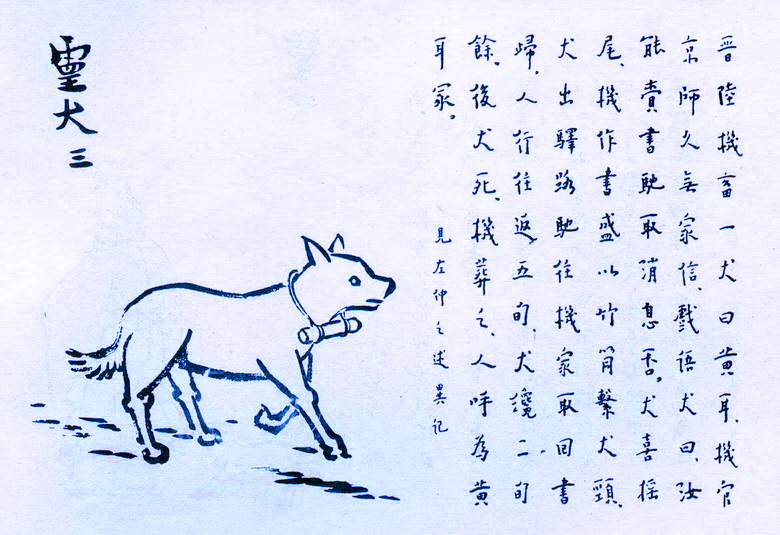 晉陸機畜一犬曰黃耳、機官
京師久無家信、戲语犬曰、汝
能賫書馳取消息否。犬喜摇
尾、機作書盛以竹筒繫犬頸、
犬出驛路馳往機家取回書
歸、人行往返五旬、犬纔二旬
餘、後犬死、機葬之、人呼為黃
耳冢。
見左仲之述異记
霊犬 三